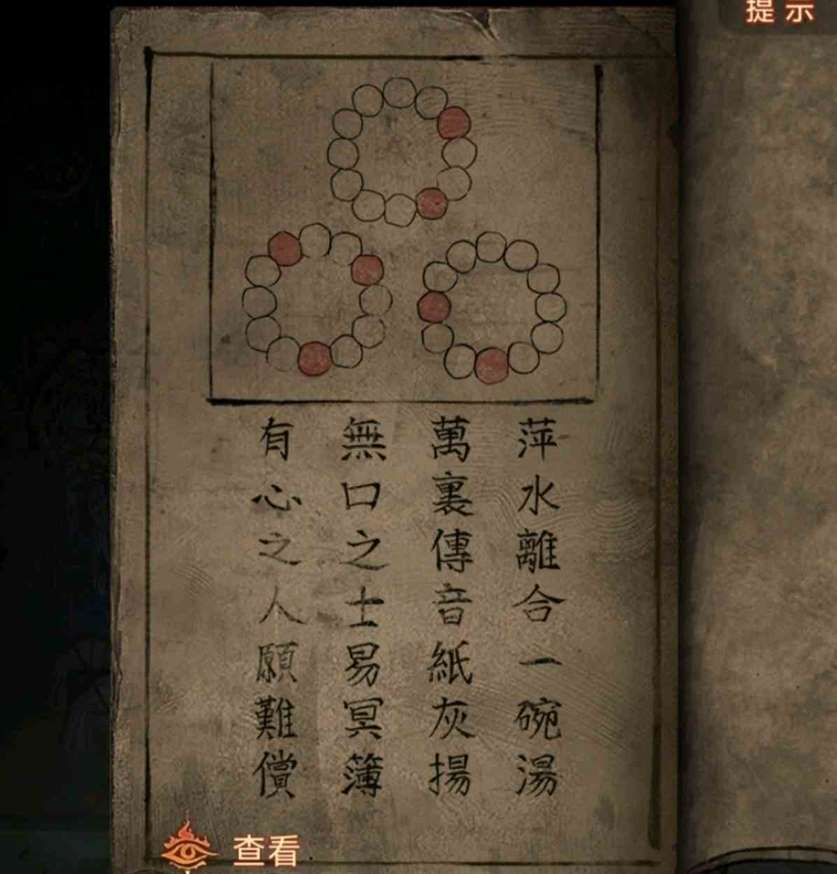 提示
萍水離合一碗湯
萬裏傳音紙灰揚
無口之士易冥簿
有心之人願難償
查看